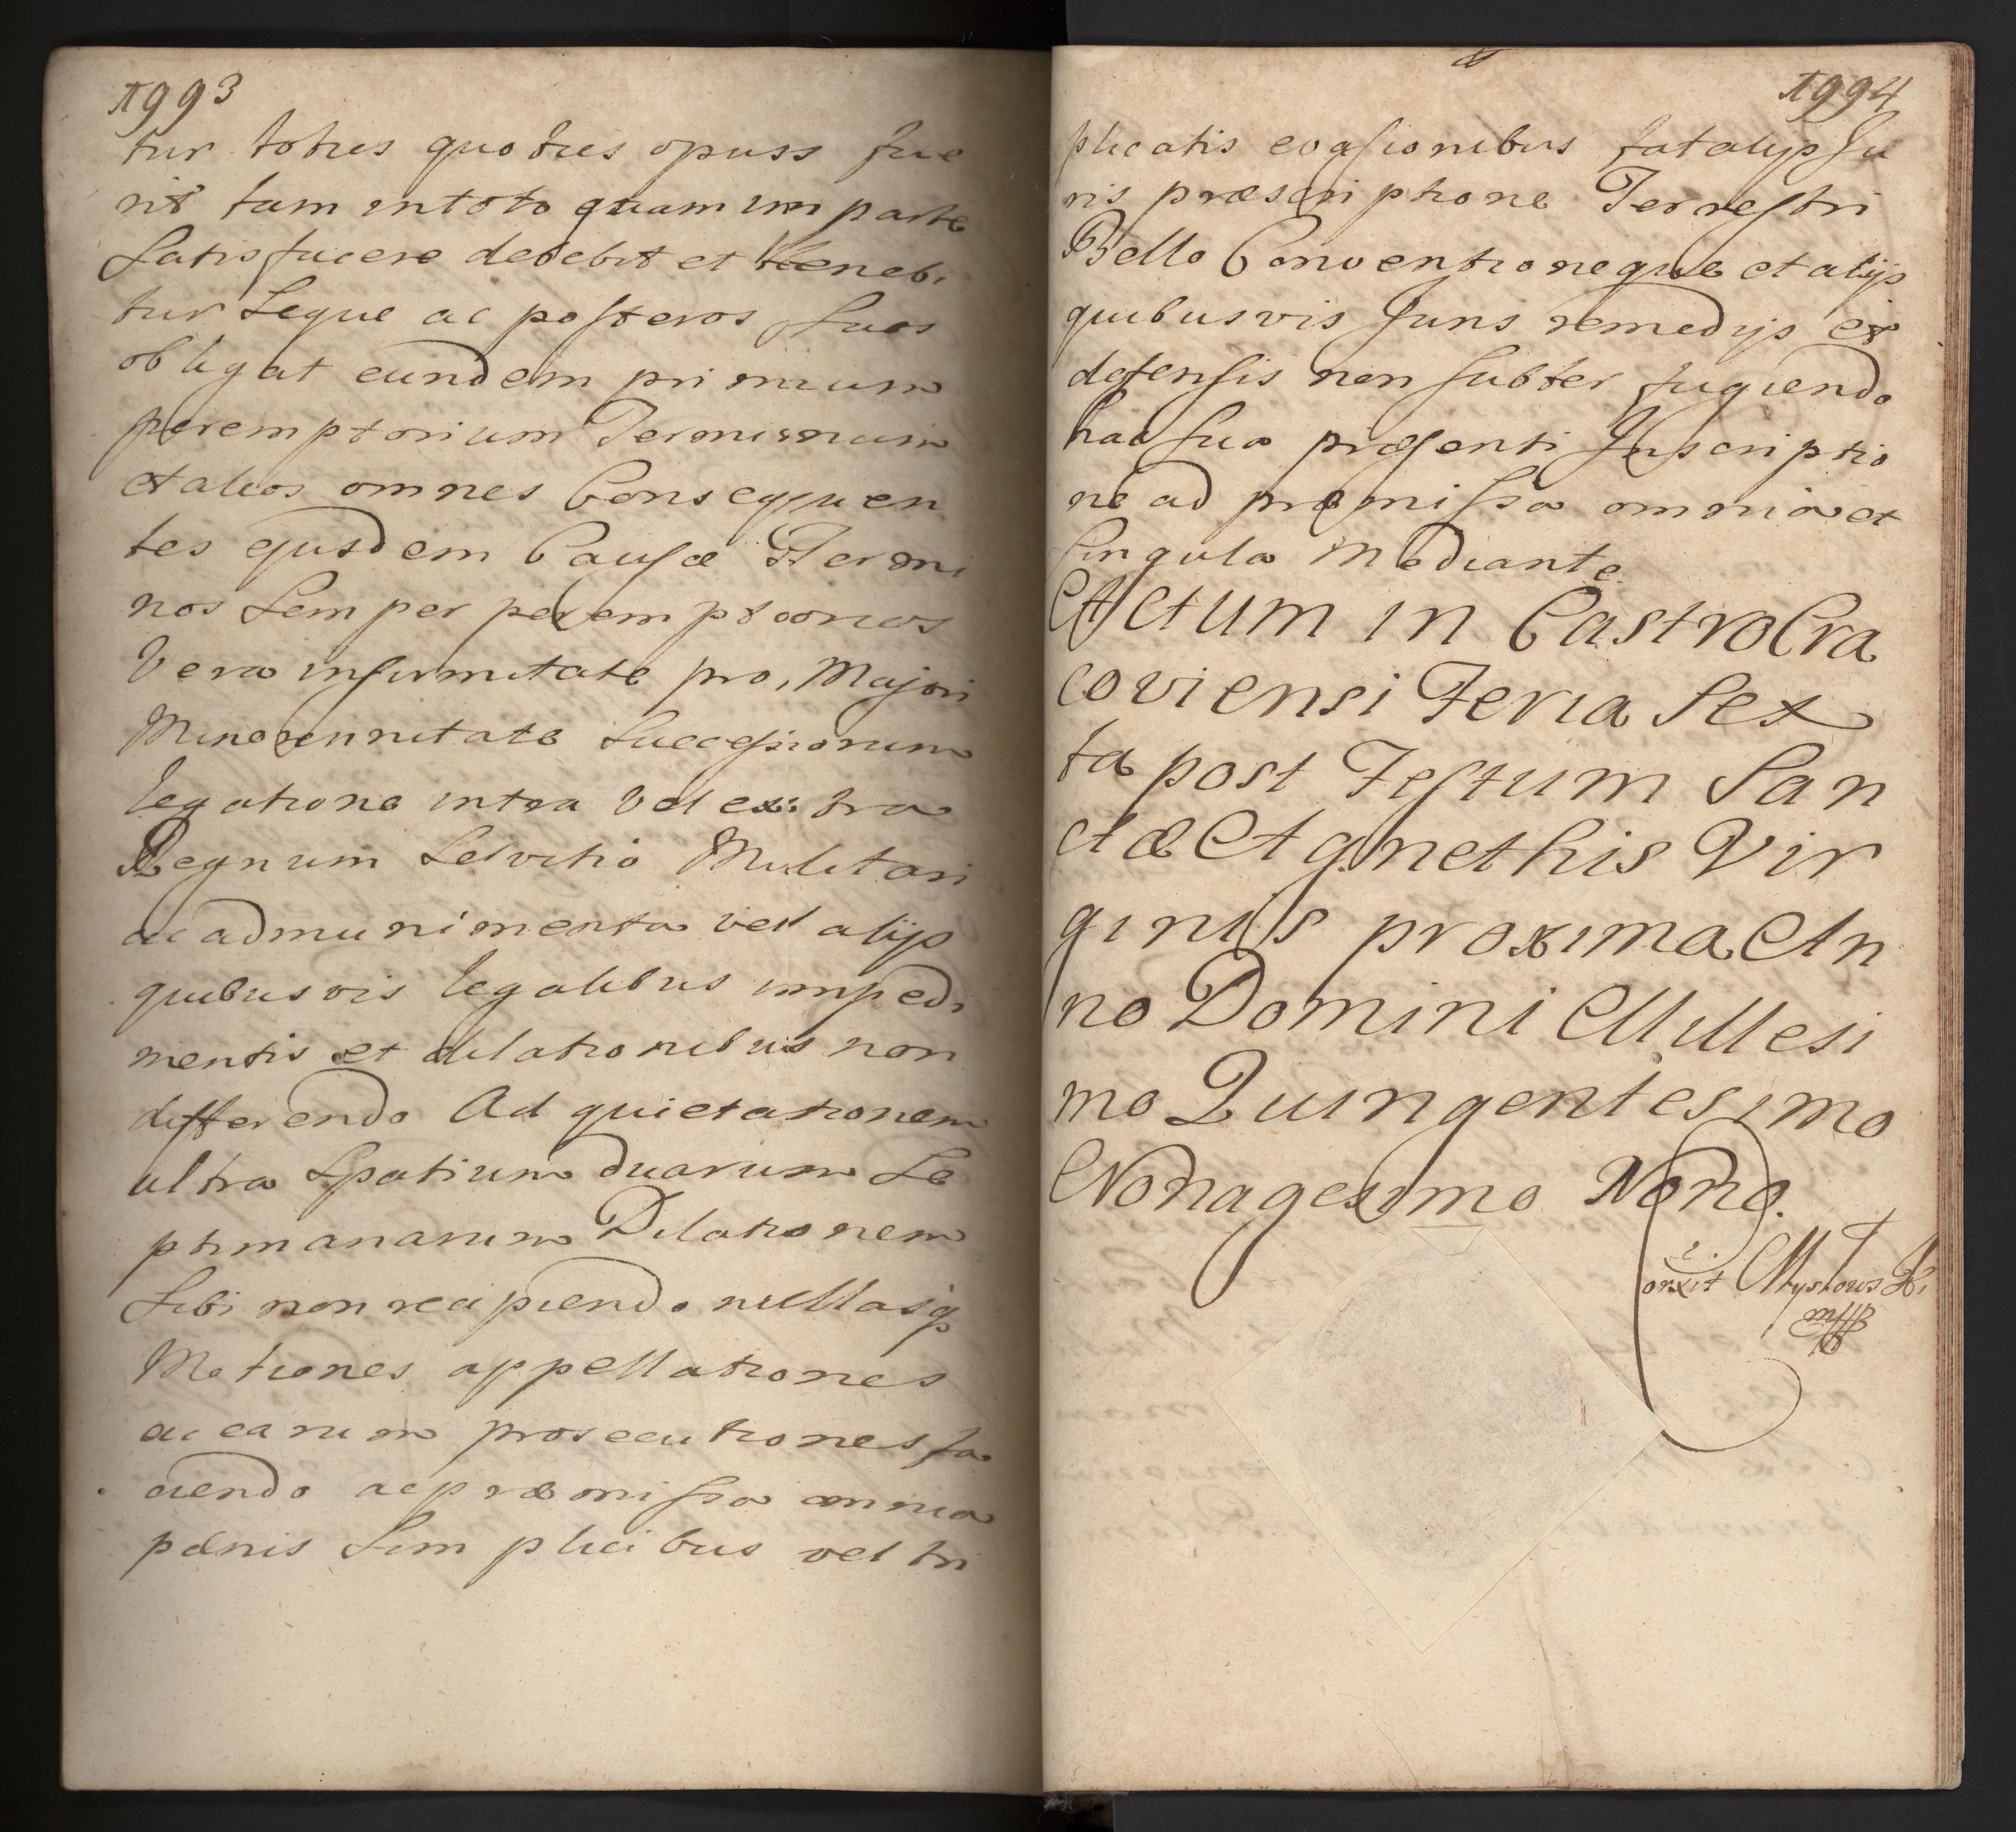 1993
tur toties quoties opuss fue
rit tam intoto quam im parte
Satisfacere debebit et tenebi
tur Seque ac posteros Suos
obligat eundem primum
peremptorium Terminum
et alios omnes Consequen
tes ejusdem Causæ Termi
nos Semper peremptorios
Vera infirmitate pro, Majori
Minorennitate Successorum
legatione intra Vel extra
Regnum Servitio Militari
ac admunimenta vel alijs
quibusvis legalibus impedi
mentis et dilationibus non
differendo Ad quietationem
ultra Spatium duarum Se
ptimanarum Dilationem
Sibi non recipiendo nullasq
Motiones appellationes
ac earum prosecutiones fa
ciendo ac præmissa omnia
pænis Simplicibus vel tri
1994
plicatis evasionibus fatalijs Ju
ris præscriptione Terrestri
Bello Conventioneque et alijs
quibusvis Juris remedijs et
defensis non Subter fugiendo
hac Sua præsenti Inscriptio
ne ad præmissa omnia et
Singula Mediante
Actum in Castro Cra
coviensi Feria Sex
ta post Festum San
ctæ Agnethis Vir
ginis proxima An
no Domini Millesi
mo Quingentesimo
Nonagesimo Nono.